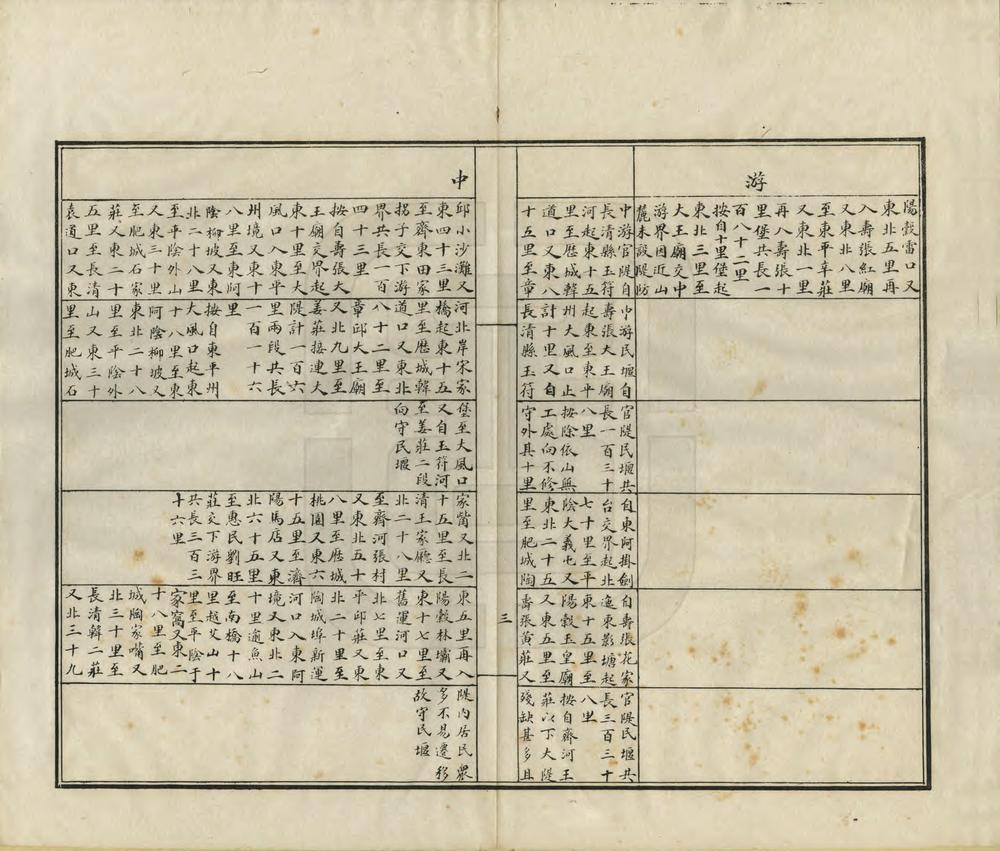 游
陽穀雷口又
東北五里再
入壽張紅廟
又東北八里
至東平辛莊
又東北一里
再入壽張十
里堡共長一
百八十二里
按自十里堡起
東北三里至
大王廟交中
游界因近山
麓未設隄防
中游官隄自
長清縣玉符
河起東十五
里至歷城韓
道口又東八
十五里至章
中游民堰自
壽張大王廟
起東至東平
州大風口止
計十里又自
長清縣玉符
官隄民堰共
長一百三十
八里
按除依山無
工處向不修
守外具十里
自東阿掛劍
台交界起北
七十里至平
陰大義屯又
東北二十五
里至肥城陶
自壽張花家
逸東影塘起
東十五里至
陽穀玉皇廟
又東五里至
壽張黃莊又
官隄民堰共
長三百三十
八里
按自齊河王
莊以下大隄
殘缺甚多且
三
中
邱小沙灘又
東四十三里
至齊東田家
拐子交下游
界共長一百
四十三里
按自壽張大
王廟交界起
東十里至大
風口入東平
州境又東十
八里至東阿
陰柳坡又東
北二十八里
至平陰外山
又東三十里
至肥城石家
莊又東二十
五里至長清
袁道口又東
河北岸宋家
橋起東十五
里至歷城韓
道口又東北
八十二里至
章邱大王廟
又北九里至
姜莊接連大
隄計一百六
里兩段共長
一百一十六
里
按自東平州
大風口起東
十八里至東
阿陰柳坡又
東北二十八
里至平陰外
山又東三十
里至肥城石
堡至大風口
又自玉符河
至姜莊二段
向守民堰
家嘴又北二
十五里至長
清王家廳又
北二十八里
至齊河張村
又東北五十
八里至歷城
桃園又東六
十五里至濟
陽馬店又東
北六十五里
至惠民劉旺
莊交下游界
共長三百三
十六里
東五里再入
陽穀林壩又
東十七里至
舊運河口又
北七里至東
平邱莊又東
北二十里至
陶城埠新運
河口入東阿
境又東北二
十里逾魚山
至南橋十八
里越艾山十
里至平陰于
家窩又東二
十八里至肥
城陶家嘴又
北三十里至
長清韓二莊
又北三十九
隄內居民眾
多不易遷移
故守民堰